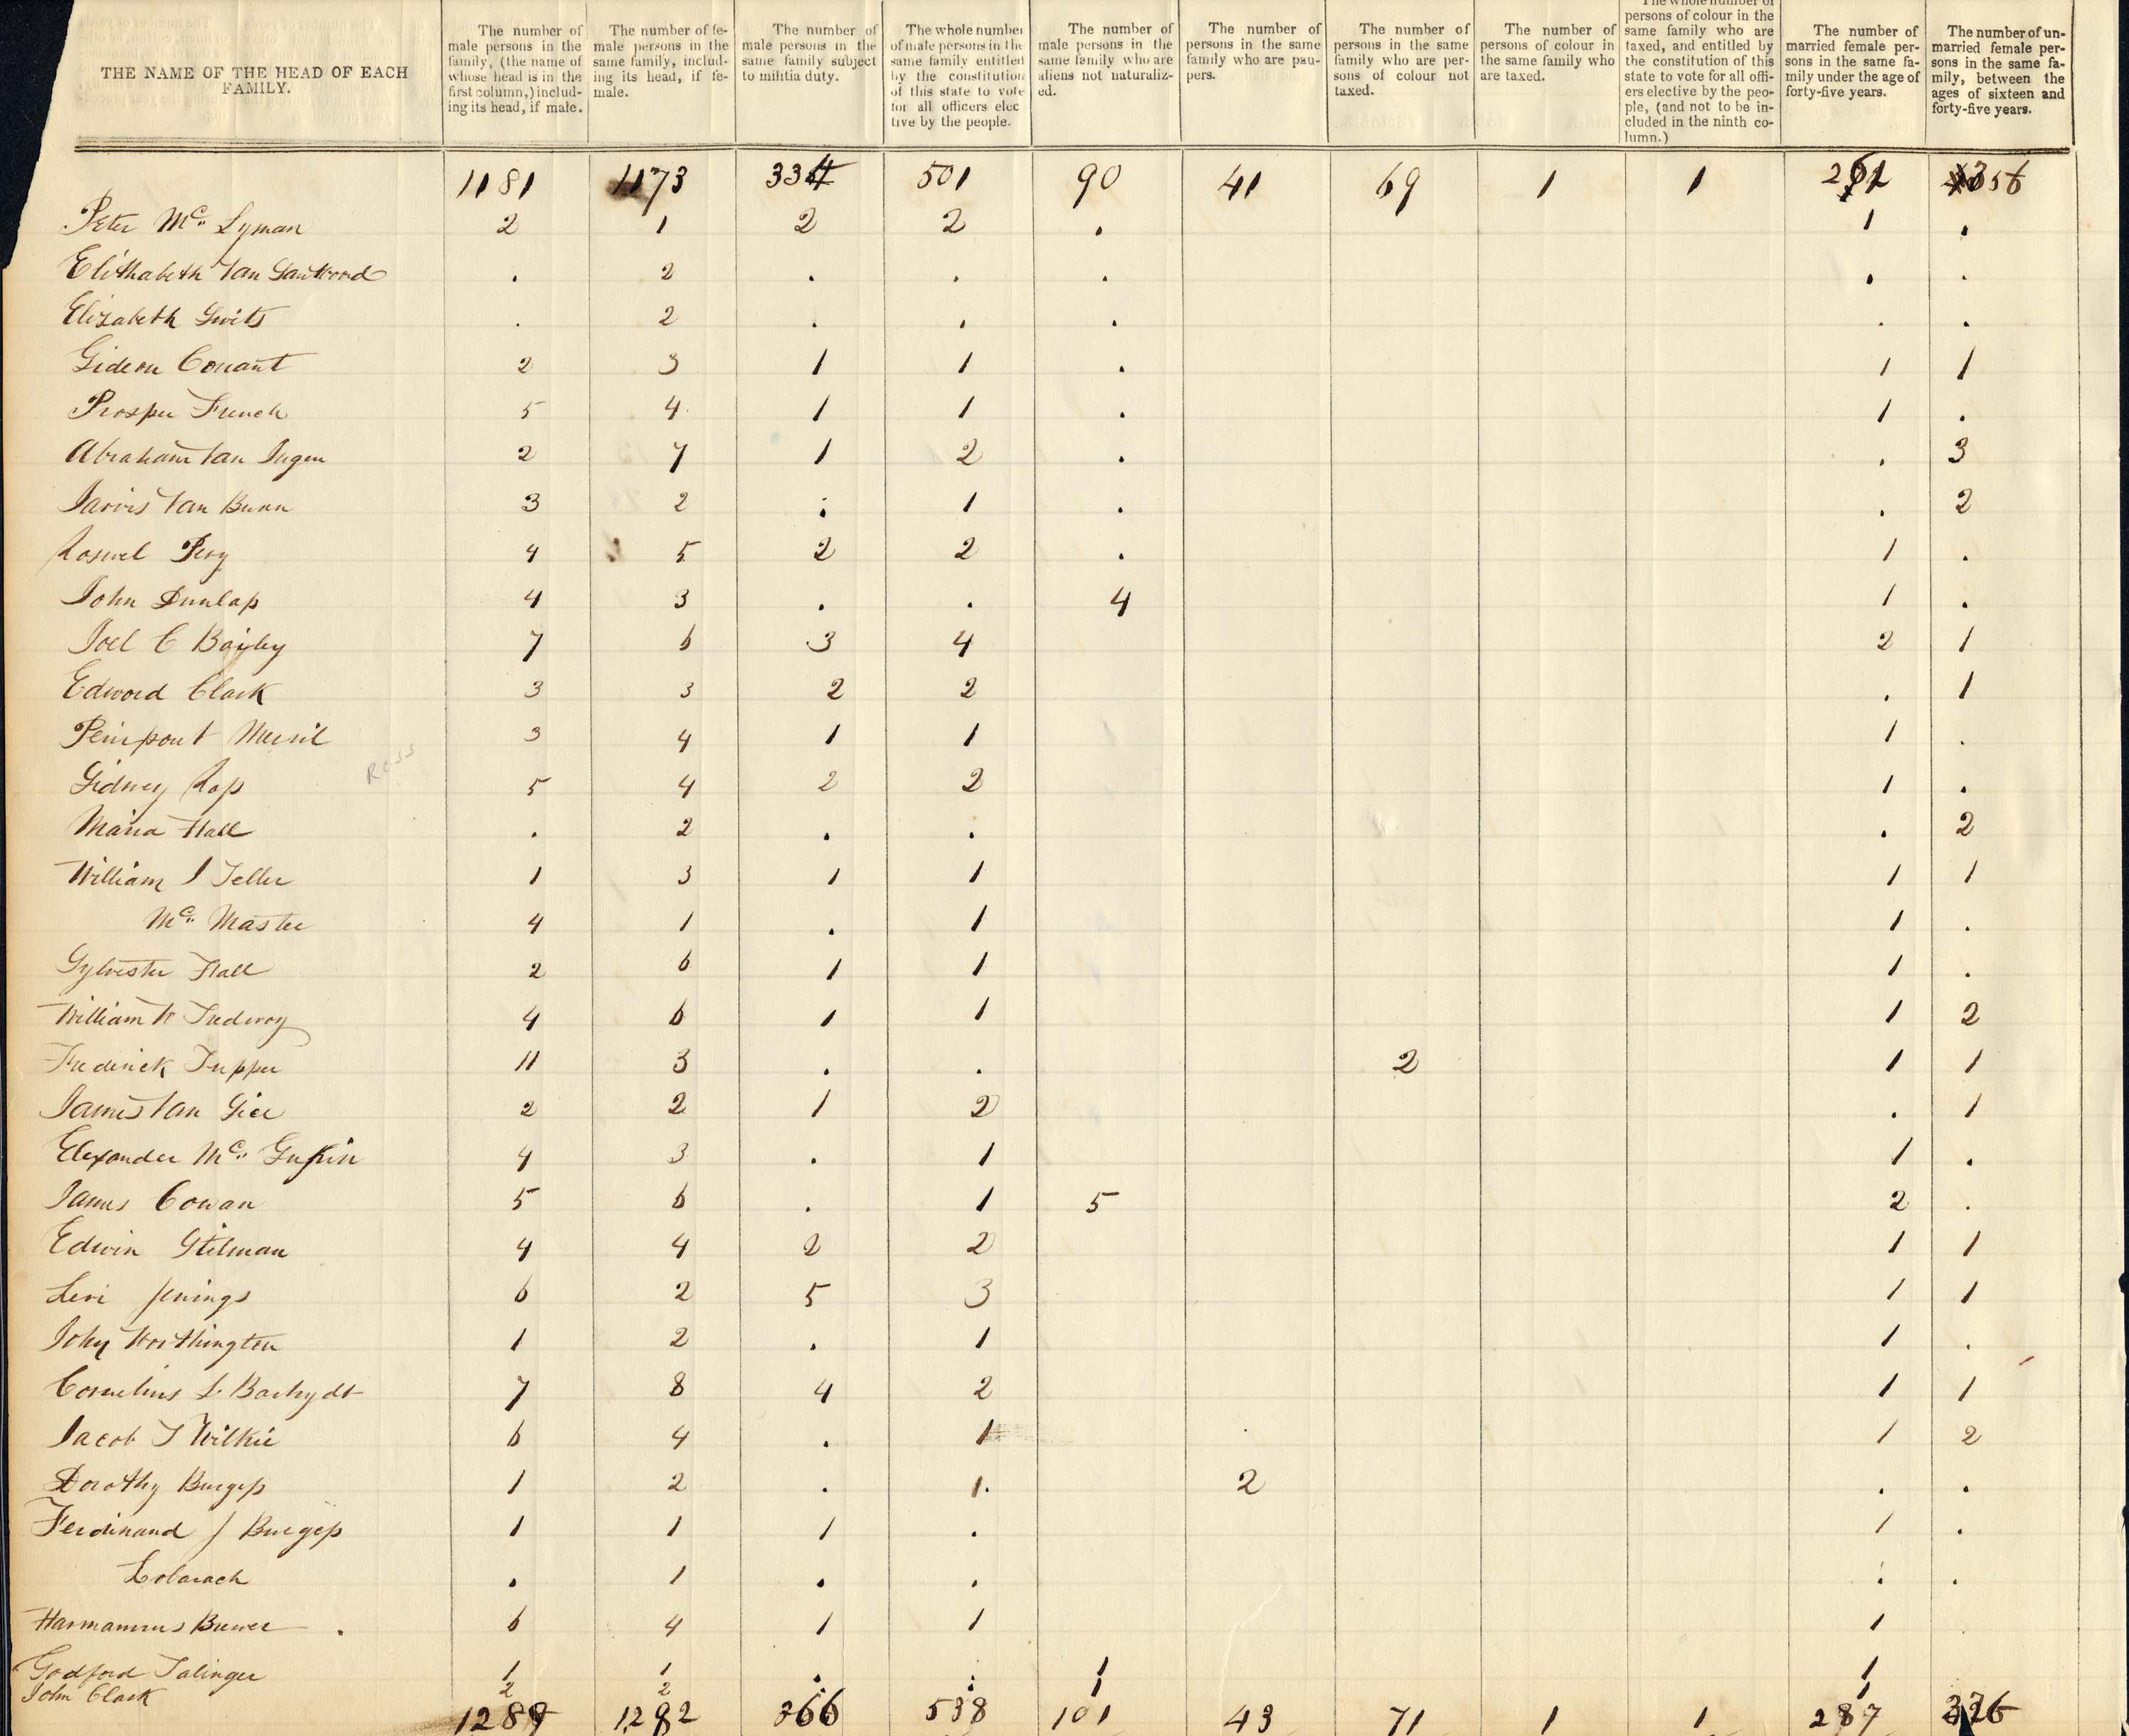 THE NAME OF THE HEAD OF EACH FAMILY.
The number of male persons in the family, (the name of whose head is in the first column,) including its head, if male.
The number of female persons in the same family, including its head, if female.
The number of male persons in the same family subject to militia duty.
The whole number of male persons in the same family entitled by the constitution of this state to vote for all officers elective by the people.
The number of male persons in the same family who are aliens not naturalized.
The number of persons in the same family who are paupers.
The number of persons in the same family who are persons of colour not taxed.
The number of persons of colour in the same family who are taxed.
The whole number of persons of colour in the same family who are taxed, and entitled by the constitution of this state to vote for all officers elective by the people, (and not to be included in the ninth column.)
The number of married female persons in the same family under the age of forty-five years.
The number of unmarried female persons in the same family, between the ages of sixteen and forty-five years.
1181 1173 334 501 90 41 69 1 1
Peter Mc. Lyman 2 1 2 2 . 1 .
Elithabeth Van . 2 . . . . .
Elizabeth Swits . 2 . . . . .
Gideon Conant 2 3 1 1 . 1 1
Prosper French 5 4 1 1 . 1 .
Abraham Van Ingen 2 7 1 2 . . 3
Jarvis Van Buren 3 2 . 1 . . 2
Roswel Pery 4 5 2 2 . 1 .
John Dunlap 4 3 . . 4 1 .
Joel C Bayley 7 6 3 4 2 1
Edword Clark 3 3 2 2 . 1
3 4 1 1 1 .
Ross
Sidney Ross 5 4 2 2 1 .
Maria Hall . 2 . . . 2
William J Teller 1 3 1 1 1 1
Mc. Master 4 1 . 1 1 .
Sylvester Hall 2 6 1 1 1 .
William W Tredwoy 4 6 1 1 1 2
Frederick Tupper 11 3 . . 2 1 1
James Van Sice 2 2 1 2 . 1
Elexander Mc. 4 3 . 1 1 .
James Cowan 5 6 . 1 5 2 .
Edwin Stilman 4 4 2 2 1 1
Levi Jenings 6 2 5 3 1 1
John Worthington 1 2 . 1 1 .
Cornelius L Barhydt 7 8 4 2 1 1
Jacob T Wilkie 6 4 . 1 1 2
Dorothy Burgess 1 2 . 1. 2 . .
Ferdinand J Burgess 1 1 1 . 1 .
. 1 . . . .
Harmannus Brewer . 6 4 1 1 1
Godford Talinger 1 1 . . 1 1
John Clark 2 2 . . 1 1
1289 1282 366 538 101 43 71 1 1 287 326